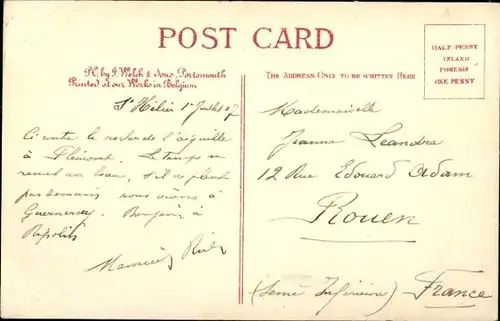 POST CARD
Ph. by J. Welch & Sons, Portsmouth
Printed at our Works in Belgium
THE ADDRESS ONLY TO BE WRITTEN HERE
HALF-PENNY
INLAND
FOREIGN
ONE PENNY
St Hélier 1er Juillet 07
Ci contre le rocher de l'aiguille
à Plémont. Le temps se
remet au beau, s'il ne pleut
pas demain nous irons à
Guernesey. Bonjour à
Maurice
Mademoiselle
Jeanne Leandre
12 Rue Edouard Adam
Rouen
(Seine Inférieure)
France